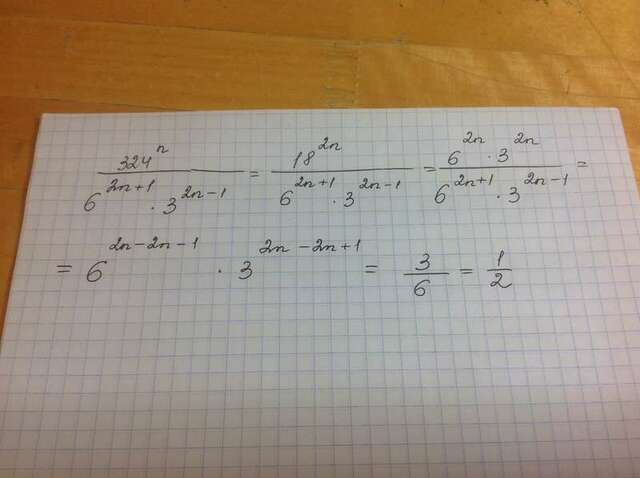 324^n / (6^(2n+1) · 3^(2n-1)) = 18^(2n) / (6^(2n+1) · 3^(2n-1)) = (6^(2n) · 3^(2n)) / (6^(2n+1) · 3^(2n-1)) =
= 6^(2n-2n-1) · 3^(2n-2n+1) = 3/6 = 1/2